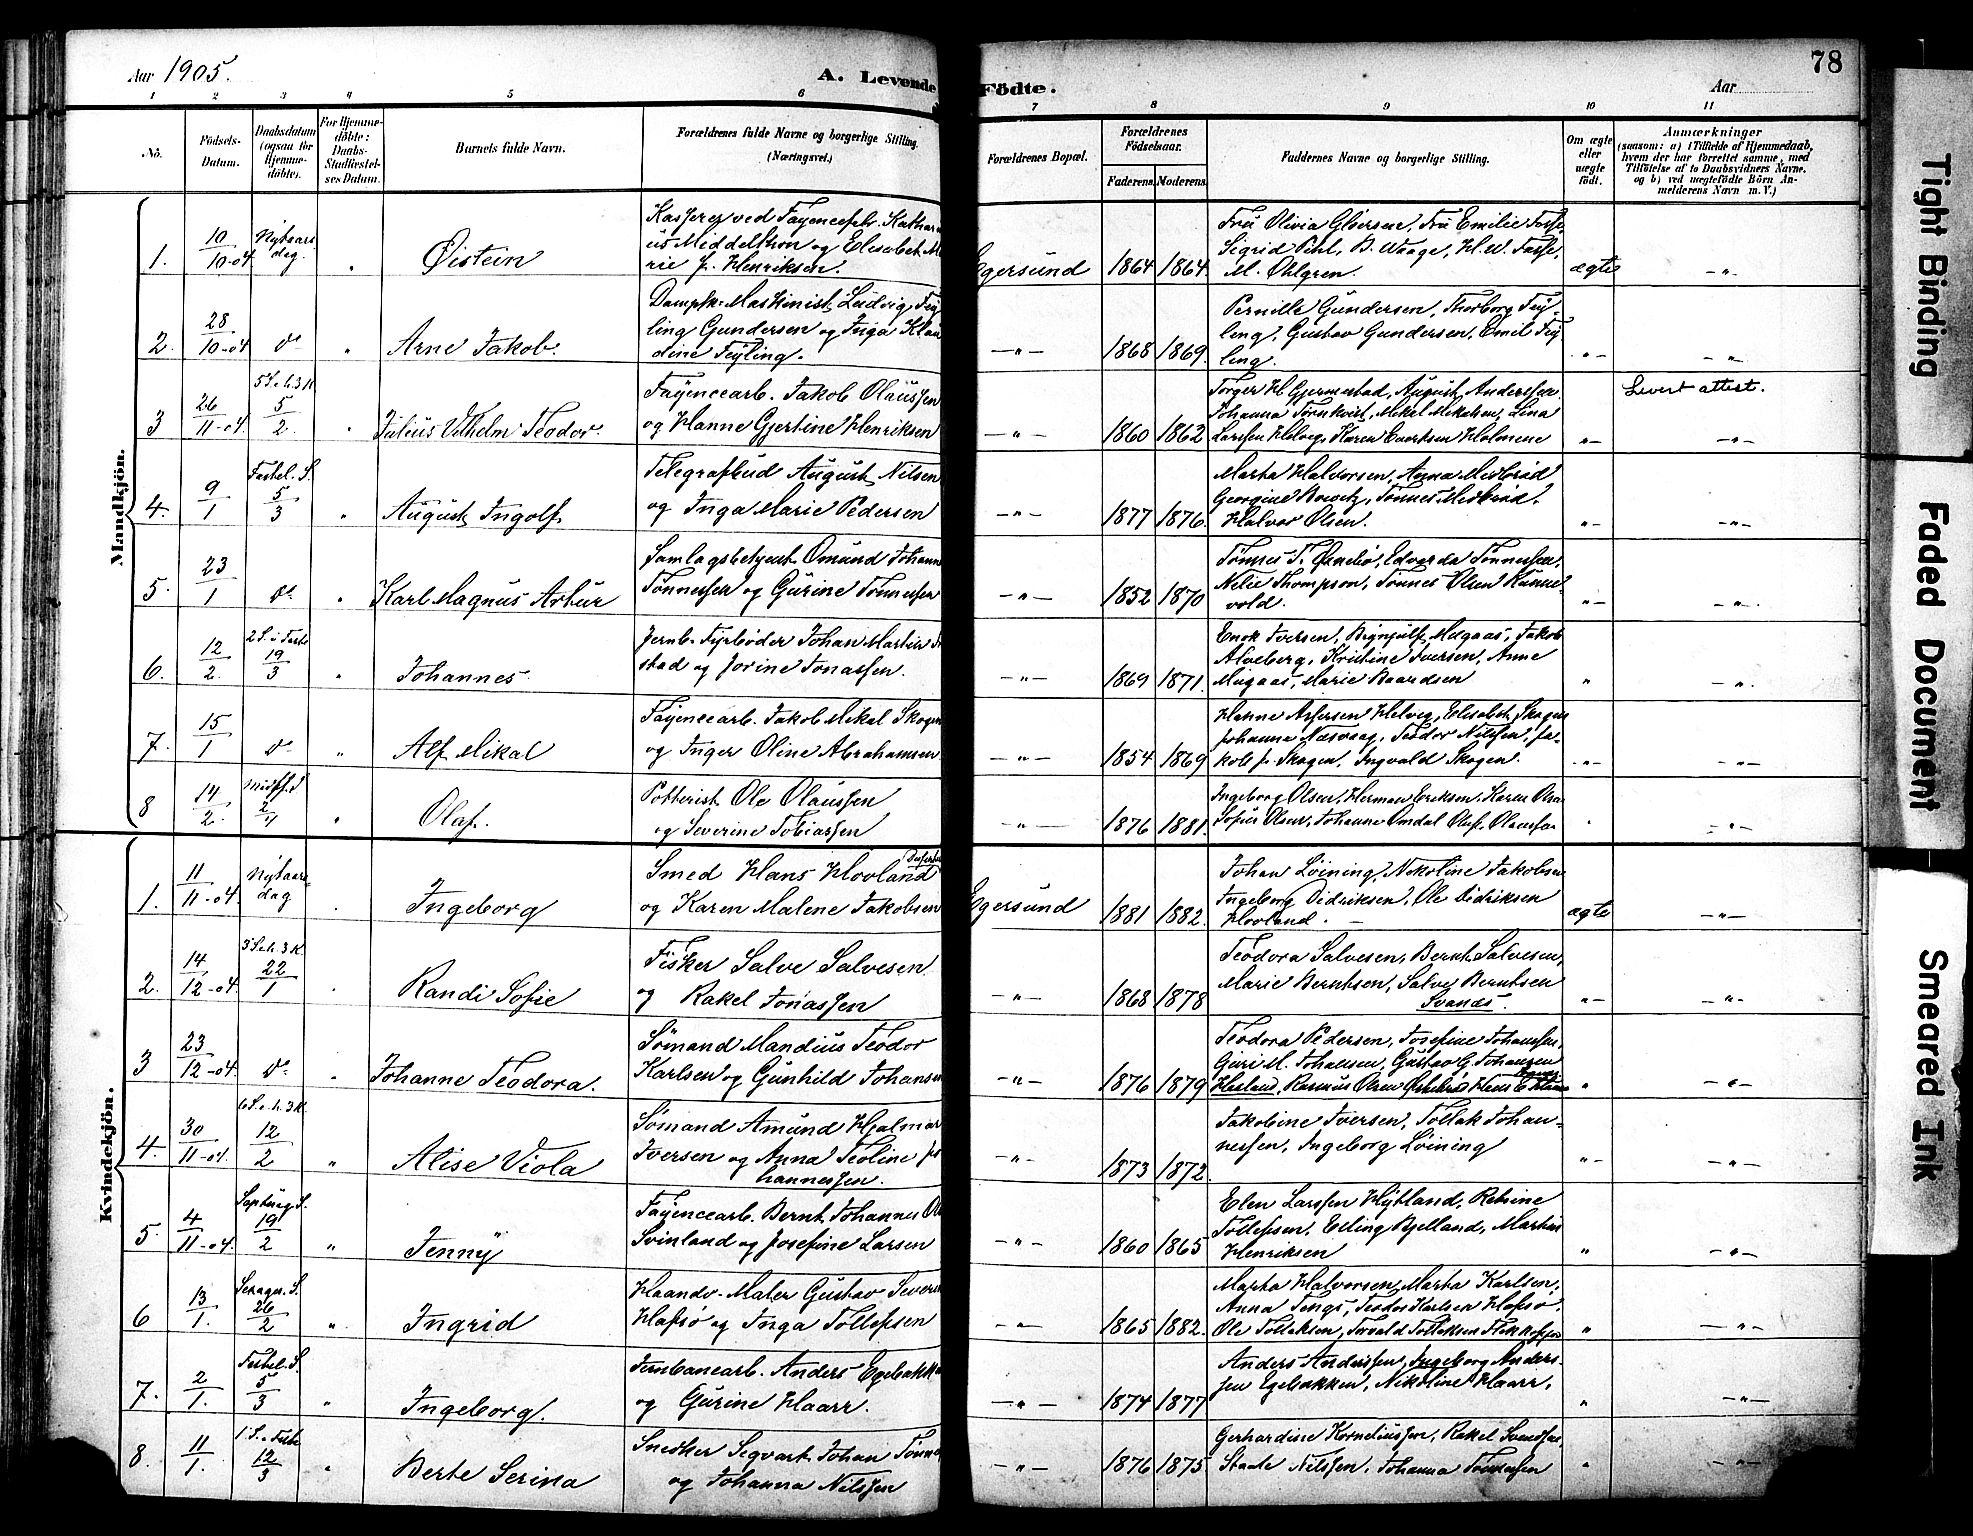 Aar 1905.
A. Levende Födte.
Aar
78
1 2 3 4 5 6 7 8 9 10 11
No.
Födsels-
Datum.
Daabsdatum
(ogsaa for
Hjemme-
döbte).
For Hjemme-
döbte:
Daabs-
Stadfæstel-
ses Datum.
Barnets fulde Navn.
Forældrenes fulde Navne og borgerlige Stilling.
(Næringsvei.)
Forældrenes Bopæl.
Forældrenes
Födselsaar.
Faderens. Moderens.
Faddernes Navne og borgerlige Stilling.
Om ægte
eller
uægte
födt.
Anmærkninger
(saasom: a) i Tilfælde af Hjemmedaab,
hvem der har forrettet samme, med
Tilföielse af to Daabsvidners Navne,
og b) ved uægtefödte Börn An-
melderens Navn m. V.)
Mandkjön.
1. 10/10-04 Nytaars
dag. " Øistein
Kasserer ved Fayencefabr. Kathar
us Middelthon og Elisabet Ma
rie f. Henriksen.
Egersund 1864 1864.
Fru Olivia Gloersen, Fru Emilie
Sigrid Pihl, B. Waage, H. W.
M. Ohlgren.
ægte -"-
2. 28/10-04 do " Arne Jakob.
Dampsk. Maskinist Ludvig Fey
ling Gundersen og Inga Klau
dine Feyling.
-"- 1868 1869.
Pernille Gundersen, Thorborg Fey-
ling, Gustav Gundersen, Emil Fey
ling.
"- -"-
3 26/11-04. 5 S. e. h. 3 K 5/2 " Julius Vilhelm Teodor.
Fayencearb. Jakob Olaussen
og Hanne Gjertine Henriksen
-"- 1860 1862
Torger H Gjermestad, August Anderssen
Johanna Törnkvist, Mikal Mikelsen, Lina
Larssen Helvig, Karen Enerksen
"- Levert attest.
-"-
4. 9/1 Fastel. S. 5/3 " August Ingolf
Telegrafbud August Nilsen
og Inga Marie Pedersen
-"- 1877 1876.
Marta Halvorsen, Anna Midbrød
Georgine Bowitz, Tönnes Midbrød.
Halvor Olsen.
"- -"-
5. 23/1 do " Karl Magnus Artur
Samlagsbetjent Omund Johann
Tönnessen og Gurine Tönnessen
-"- 1852 1870
Tönnes T. , Edvarda Tönnessen,
Nelie Thompson, Tönnes Olsen Rünne
vold.
"- -"-
6. 12/2. 2 S. i Faste 19/3 " Johannes
Jernb. Fyrbøder Johan Martin
stad og Jorine Jonassen.
-"- 1869 1871.
Enok Iversen, Brynjulf Migaas, Jakob
Alveberg, Kristine Iversen, Anne
Migaas, Marie Baardsen
" -"-
7. 15/1 do " Alf Mikal
Fayencearb. Jakob Mikal Skogen
og Inger Oline Abrahamsen
-"- 1854 1869
Hanne Helvig, Elisabet Skogen
Johanna Næsvaag, Teodor Nilssen, Ja-
kob J. Skogen, Ingvald Skogen.
"- -"-
8 14/2. 2/4 " Olaf.
Potterist Ole Olaussen
og Severine Tobiassen
-"- 1876 1881.
Ingeborg Olsen, Herman Eriksen, Karen
Sofus Olsen, Johanne Omdal Oluf Olaussen
" -"-
Kvindekjön.
1. 11/11-04. Nytaars-
dag Ingeborg
Smed Hans Hovland
og Karen Malene Jakobsen
Egersund 1881 1882.
Johan Löining, Nikoline Jakobsen
Ingeborg Didriksen, Ole Didriksen
Hovland.
ægte -"-
2. 14/12-04. 3 S. e. h. 3 K. 22/1 Randi Sofie
Fisker Salve Salvesen
og Rakel Jonassen
-"- 1868 1878
Teodora Salvesen, Bernt Salvesen,
Marie Berntsen, Salve Berntsen
Svanes.
"- -"-
3 23/12-04. do " Johanne Teodora.
Sömand Mandius Teodor
Karlsen og Gunhild Johansen
-"- 1876 1879
Teodora Pedersen, Josefine Johanssen,
Guri M. Johansen, Gustav G. Johansen
Hasland, Rasmus Olsen
" -"-
4. 30/11-04. 6 S. e. h. 3 K. 12/2 " Alise Viola
Sömand Amund Hjalmar
Iversen og Anna Teoline Jo
hannessen.
-"- 1873 1872
Jakobine Iversen, Tollak Johan-
nessen, Ingeborg Löining
"- -"-
5. 4/11-04. Septuag. S. 19/2 " Jenny
Fayencearb. Bernt Johannes
Svinland og Josefine Larsen
-"- 1860 1865
Elen Larssen Hytland, Retrine
Tollefsen, Elling Bjelland, Martin
Henriksen
" -"-
6 13/1. Sexages. S. 26/2 " Ingrid
Haandv. Maler Gustav Severin
Hafsö og Inga Tollefsen
-"- 1865 1882.
Marta Halvorsen, Marta Karlsen,
Anna Tengs, Teodor Karlsen Hafsö,
Ole Tollaksen, Torvald Tollaksen
" -"-
7. 2/1. Fastel. S. 5/3 " Ingeborg.
Jernbanearb. Anders Egebakken
og Gurine Haarr.
-"- 1874 1877
Anders Anderssen, Ingeborg Anders-
sen Egebakken, Nikoline Haarr.
" -"-
8. 11/1. 1 S. i Faste 12/3 " Berte Serina
Snedker Segvart Johan
og Johanna Nilssen
-"- 1876 1875
Gerhardine Korneliussen, Rakel Svendsen,
Staale Nilssen, Johanna Tönnessen
" -"-
Tight Binding
Faded Document
Smeared Ink